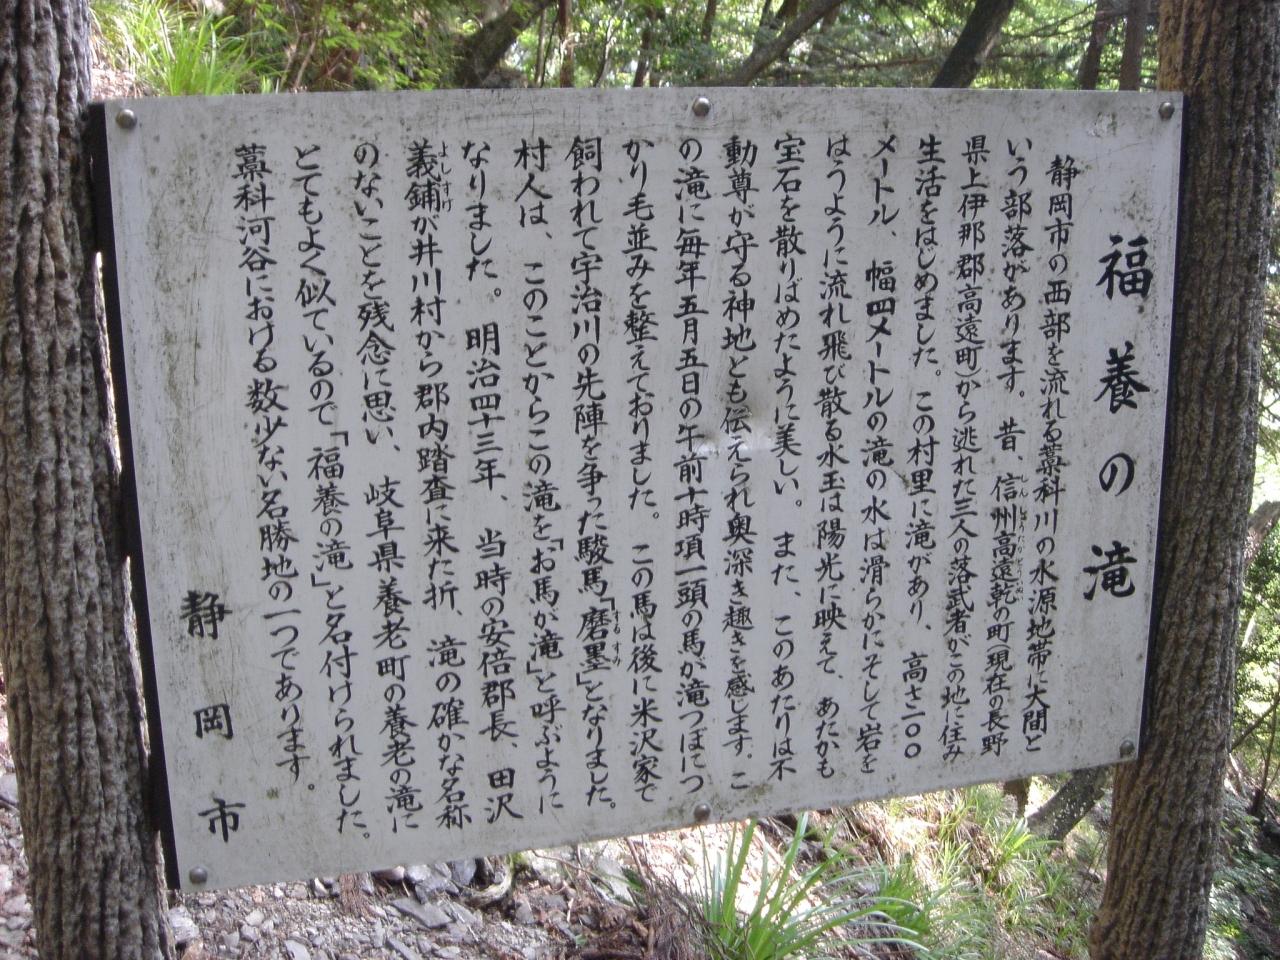 福養の滝
静岡市の西部を流れる藁科川の水源地帯に大間と
いう部落があります。昔、信州高遠乾の町(現在の長野
県上伊那郡高遠町)から逃れた三人の落武者がこの地に住み
生活をはじめました。この村里に滝があり、高さ一〇〇
メートル、幅四メートルの滝の水は滑らかにそして岩を
はうように流れ飛び散る水玉は陽光に映えて、あたかも
宝石を散りばめたように美しい。また、このあたりは不
動尊が守る神地とも伝えられ奥深き趣きを感じます。こ
の滝に毎年五月五日の午前十時項一頭の馬が滝つぼにつ
かり毛並みを整えておりました。この馬は後に米沢家で
飼われて宇治川の先陣を争った駿馬「磨墨」となりました。
村人は、このことからこの滝を「お馬が滝」と呼ぶように
なりました。明治四十三年、当時の安倍郡長、田沢
義鋪が井川村から郡内踏査に来た折、滝の確かな名称
のないことを残念に思い、岐阜県養老町の養老の滝に
とてもよく似ているので「福養の滝」と名付けられました。
藁科河谷における数少ない名勝地の一つであります。
静岡市